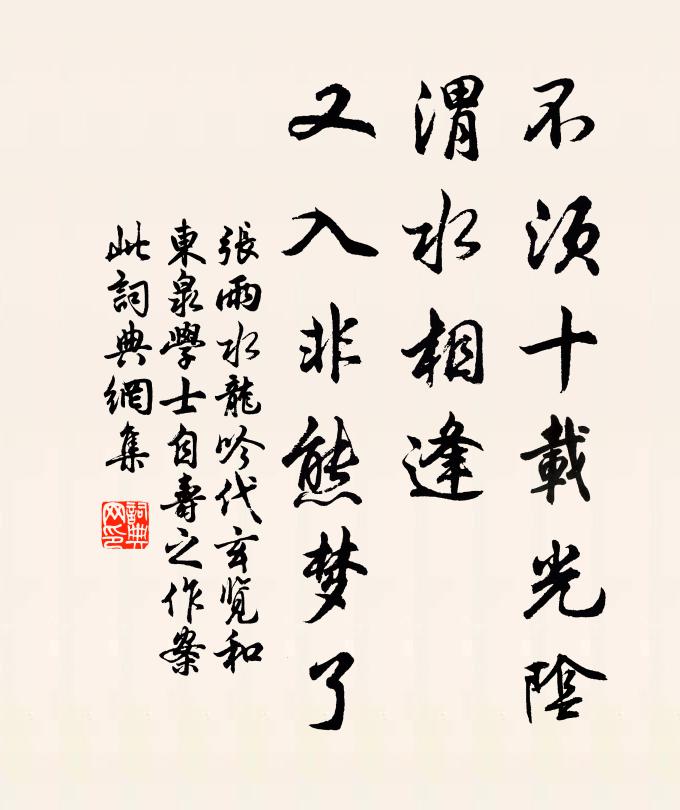 不须十載光陰
渭水相逢
又入非熊梦了
張雨水龍吟代玄览和
東泉學士自壽之作案
此詞典網集
詞典网印